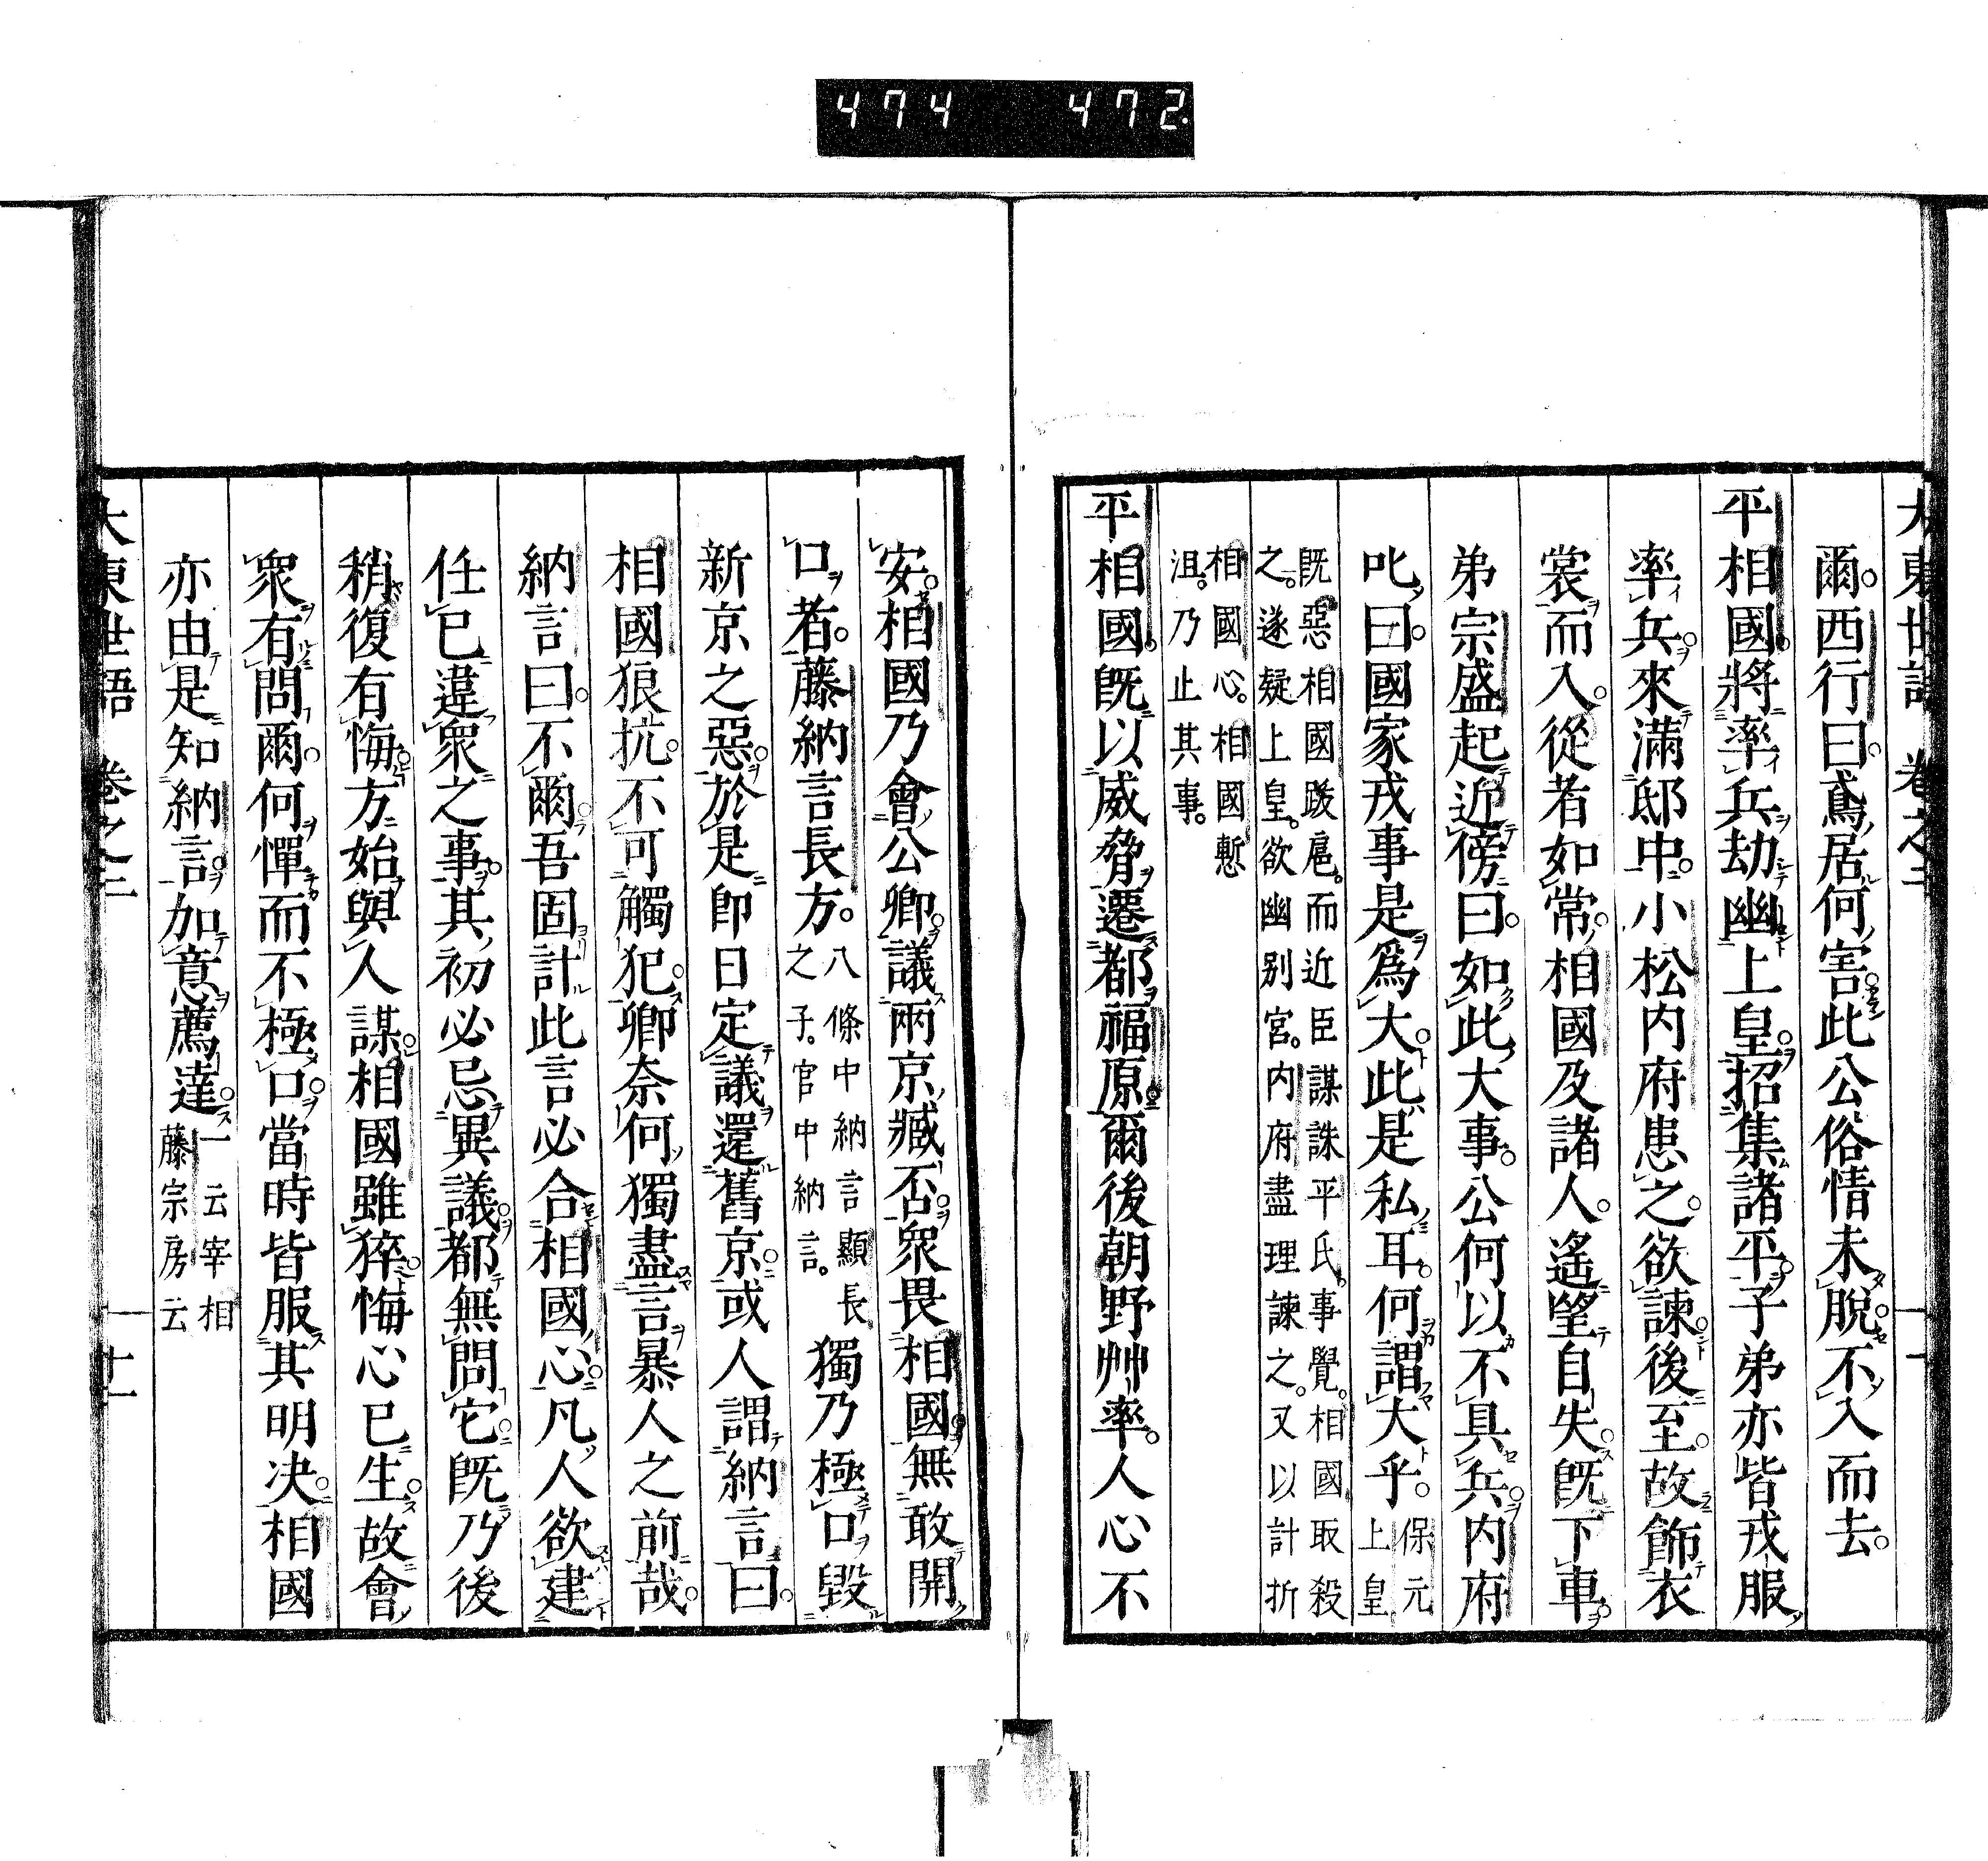 474 472.
大東世語 卷之二 十一
爾。西行曰。鳶居何害。此公俗情未脫。不入而去。
平相國。將率兵劫幽上皇。招集諸平。子弟亦皆戎服
率兵。來滿邸中。小松内府患之。欲諫後至。故飾衣
裳而入。從者如常。相國及諸人。遙望自失。旣下車。
弟宗盛起近傍曰。如此大事。公何以不具兵。内府
叱曰。國家戎事是爲大。此是私耳。何謂大乎。保元上皇
旣惡相國跋扈。而近臣謀誅平氏。事覺。相國取殺
之。遂疑上皇。欲幽別宮。内府盡理諫之。又以計折
相國心。相國慙
沮。乃止其事。
平相國。旣以威脅遷都福原。爾後朝野艸率。人心不
安。相國乃會公卿。議兩京臧否。衆畏相國。無敢開
口者。藤納言長方。八條中納言顯長之子。官中納言。獨乃極口毀
新京之惡。於是即日定議還舊京。或人謂納言曰。
相國狼抗。不可觸犯。卿奈何獨盡言暴人之前哉。
納言曰。不爾。吾固計此言必合相國心。凡人欲建
任已違衆之事。其初必忌異議。都無問它。旣乃後
稍復有悔。方始與人謀。相國雖猝悔心已生。故會
衆有問爾。何憚而不極口。當時皆服其明決。相國
亦由是知納言。加意薦達。一云宰相藤宗房云
大東世語 卷之二 十一